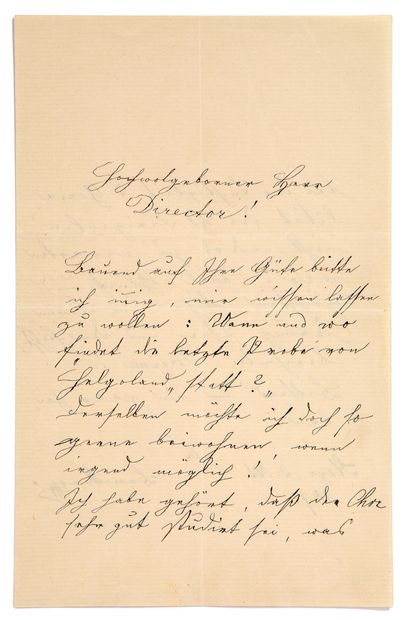 Hochwolgeborner Herr
Director!
Bauend auf Ihre Güte bitte
ich innig, mir wissen lassen
zu wollen: Wann und wo
findet die letzte Probe von
„Helgoland“ statt?
Derselben möchte ich doch so
gerne beiwohnen, wenn
irgend möglich!
Ich habe gehört, daß der Chor
sehr gut studirt sei, was